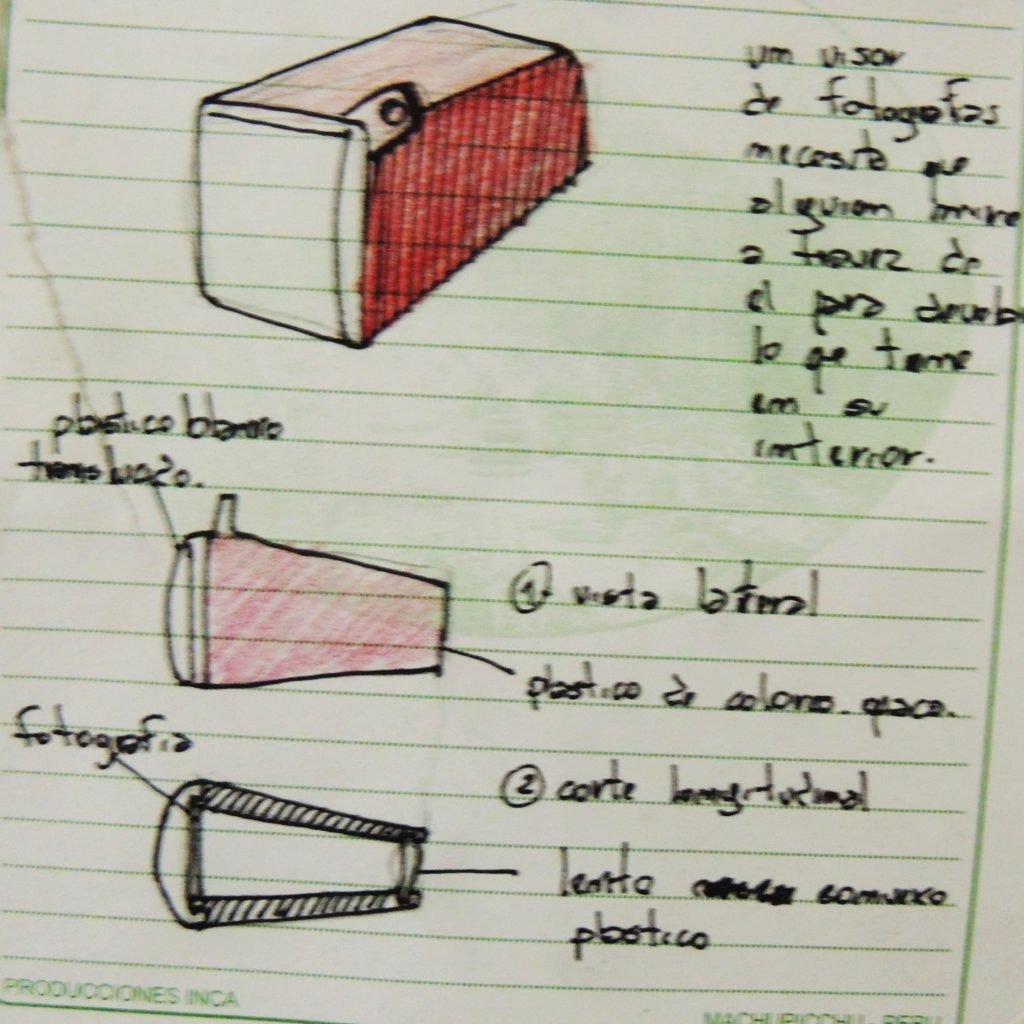 un visor
de fotografias
necesita que
alguien mire
a travez de
el para
lo que tiene
en su
interior.
plastico blanco
translucido.
① vista lateral
plastico de colores. opaco.
fotografia
② corte longitudinal
lente convexo
plastico
PRODUCCIONES INCA
MACHUPICCHU - PERU